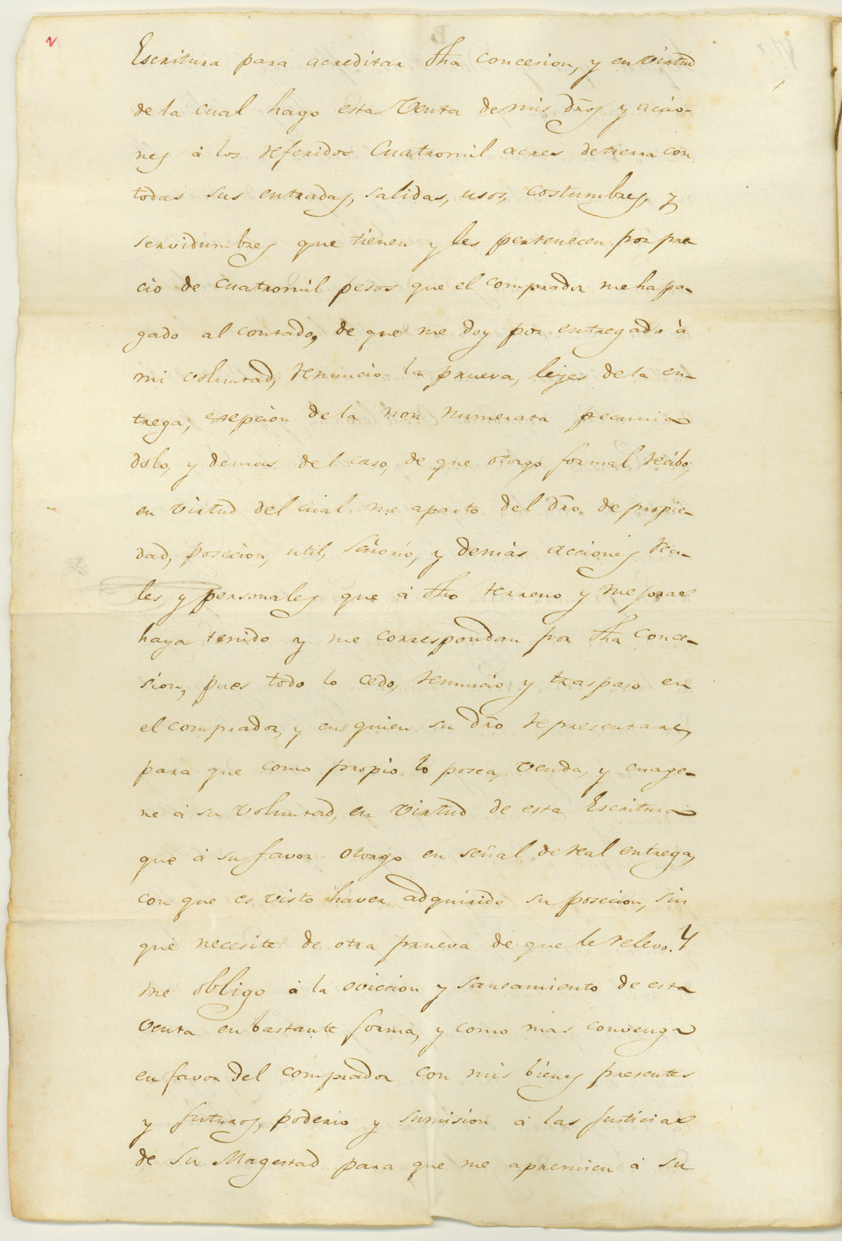 Escritura para acreditar dha concesion, y en virtud
de la cual hago esta Venta de mis dros, y accio-
nes à los referidos Cuatromil acres de tierra con
todas sus entradas, salidas, usos, costumbres, y
servidumbres que tienen y les pertenecen por pre
cio de Cuatromil pesos que el comprador me ha pa-
gado al contado, de que me doy por entregado à
mi voluntad, renuncio la prueva, leyes de la en-
trega, esepcion de la non numerata pecunia
dolo, y demas del caso, de que otorgo formal recibo,
en virtud del cual me aparto del dro. de propie-
dad, posecion, util, señorio, y demàs acciones rea-
les, y personales que à dho terreno y mejoras
haya tenido y me correspondan por dha conce-
sion, pues todo lo cedo, renuncio y traspaso en
el comprador, y en quien su dro representare,
para que como propio lo posea, venda, y enage-
ne à su voluntad, en virtud de esta Escritura
que à su favor otorgo en señal de real entrega,
con que es visto haver adquirido su posecion, sin
que necesite de otra prueva de que le relevo. Y
me obligo à la eviccion y saneamiento de esta
Venta en bastante forma, y como mas convenga
en favor del comprador con mis bienes presentes
y futuros, poderio y sumision a las Justicias
de Su Magestad para que me apremien à su